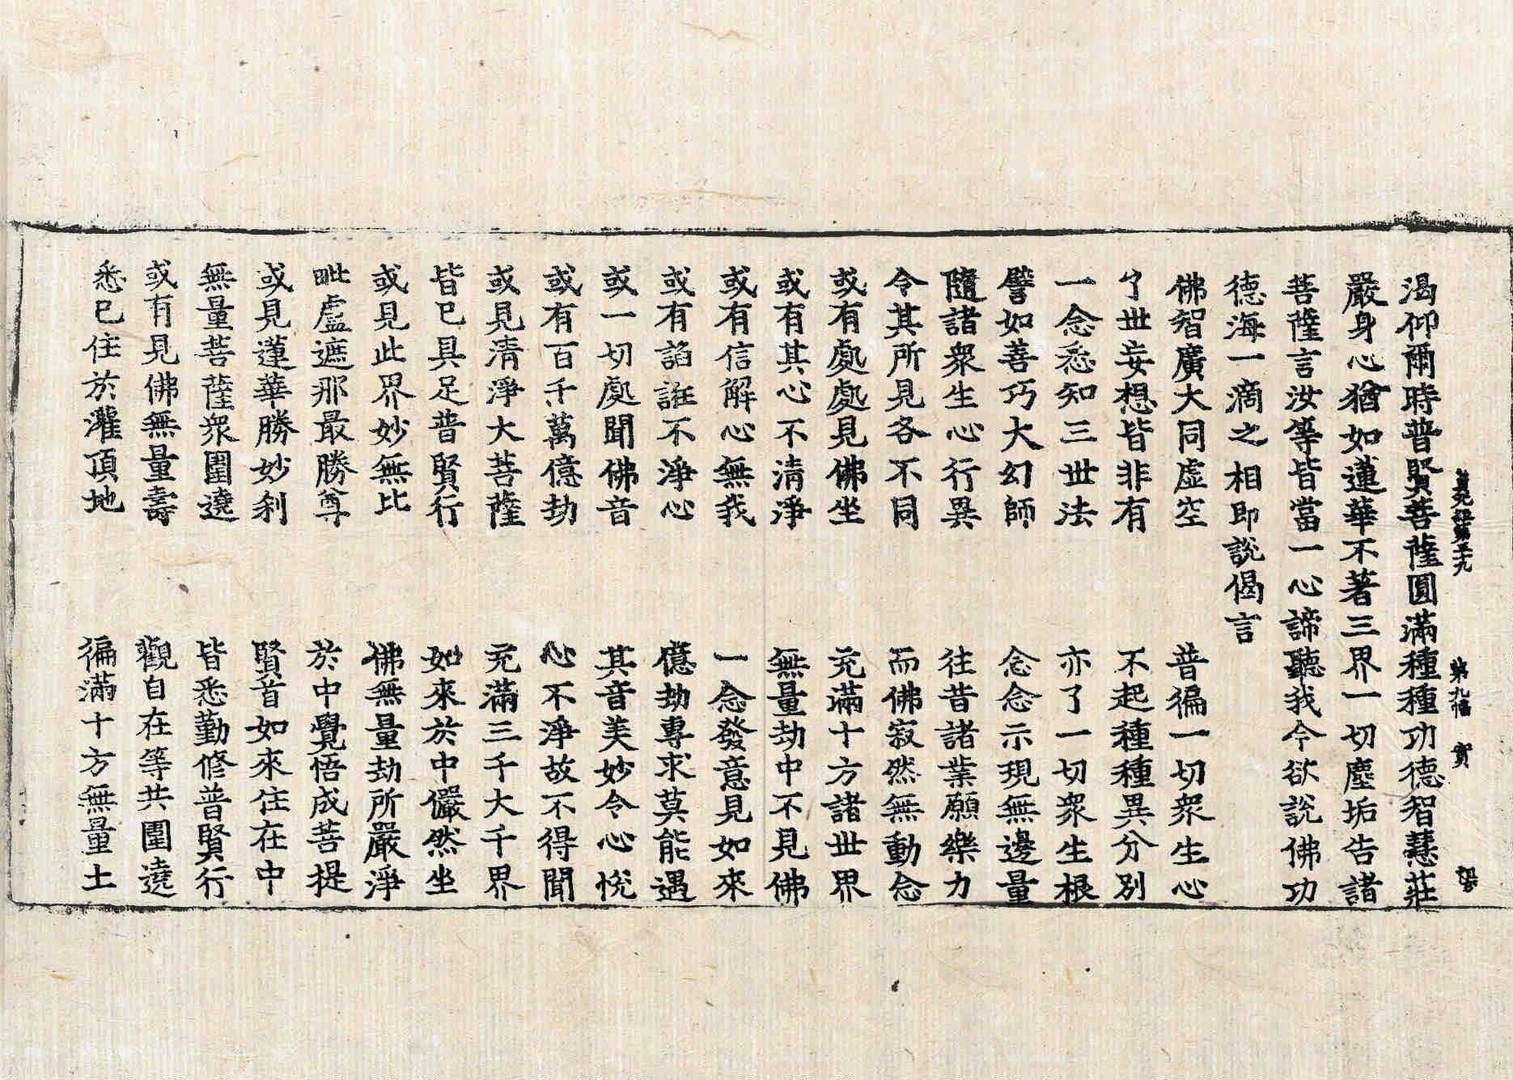 渴仰爾時普賢菩薩圓滿種種功德智慧莊
嚴身心猶如蓮華不著三界一切塵垢告諸
菩薩言汝等皆當一心諦聽我今欲說佛功
德海一滴之相即說偈言
佛智廣大同虛空 普徧一切衆生心
了世妄想皆非有 不起種種異分別
一念悉知三世法 亦了一切衆生根
譬如善巧大幻師 念念示現無邊量
隨諸衆生心行異 往昔諸業願樂力
令其所見各不同 而佛寂然無動念
或有處處見佛坐 充滿十方諸世界
或有其心不清淨 無量劫中不見佛
或有信解心無我 一念發意見如來
或有諂誑不淨心 億劫專求莫能遇
或一切處聞佛音 其音美妙令心悅
或有百千萬億劫 心不淨故不得聞
或見清淨大菩薩 充滿三千大千界
皆已具足普賢行 如來於中儼然坐
或見此界妙無比 佛無量劫所嚴淨
毗盧遮那最勝尊 於中覺悟成菩提
或見蓮華勝妙刹 賢首如來住在中
無量菩薩衆圍遶 皆悉勤修普賢行
或有見佛無量壽 觀自在等共圍遶
悉已住於灌頂地 徧滿十方無量土